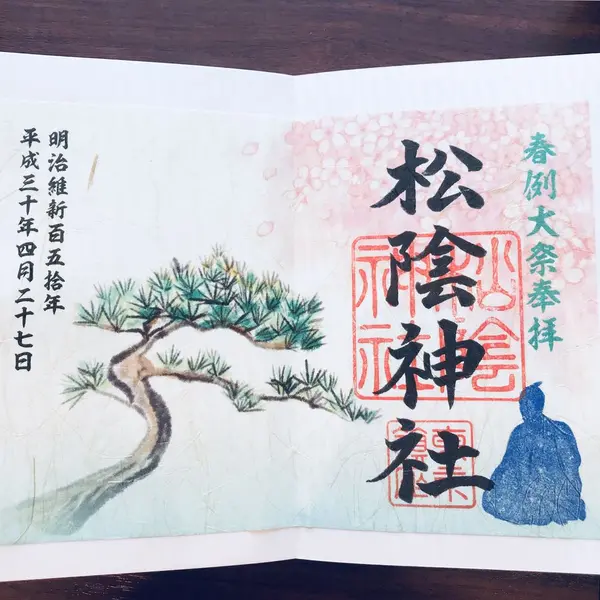 春例大祭奉拝
松陰神社
松陰神社
明治維新百五拾年
平成三十年四月二十七日